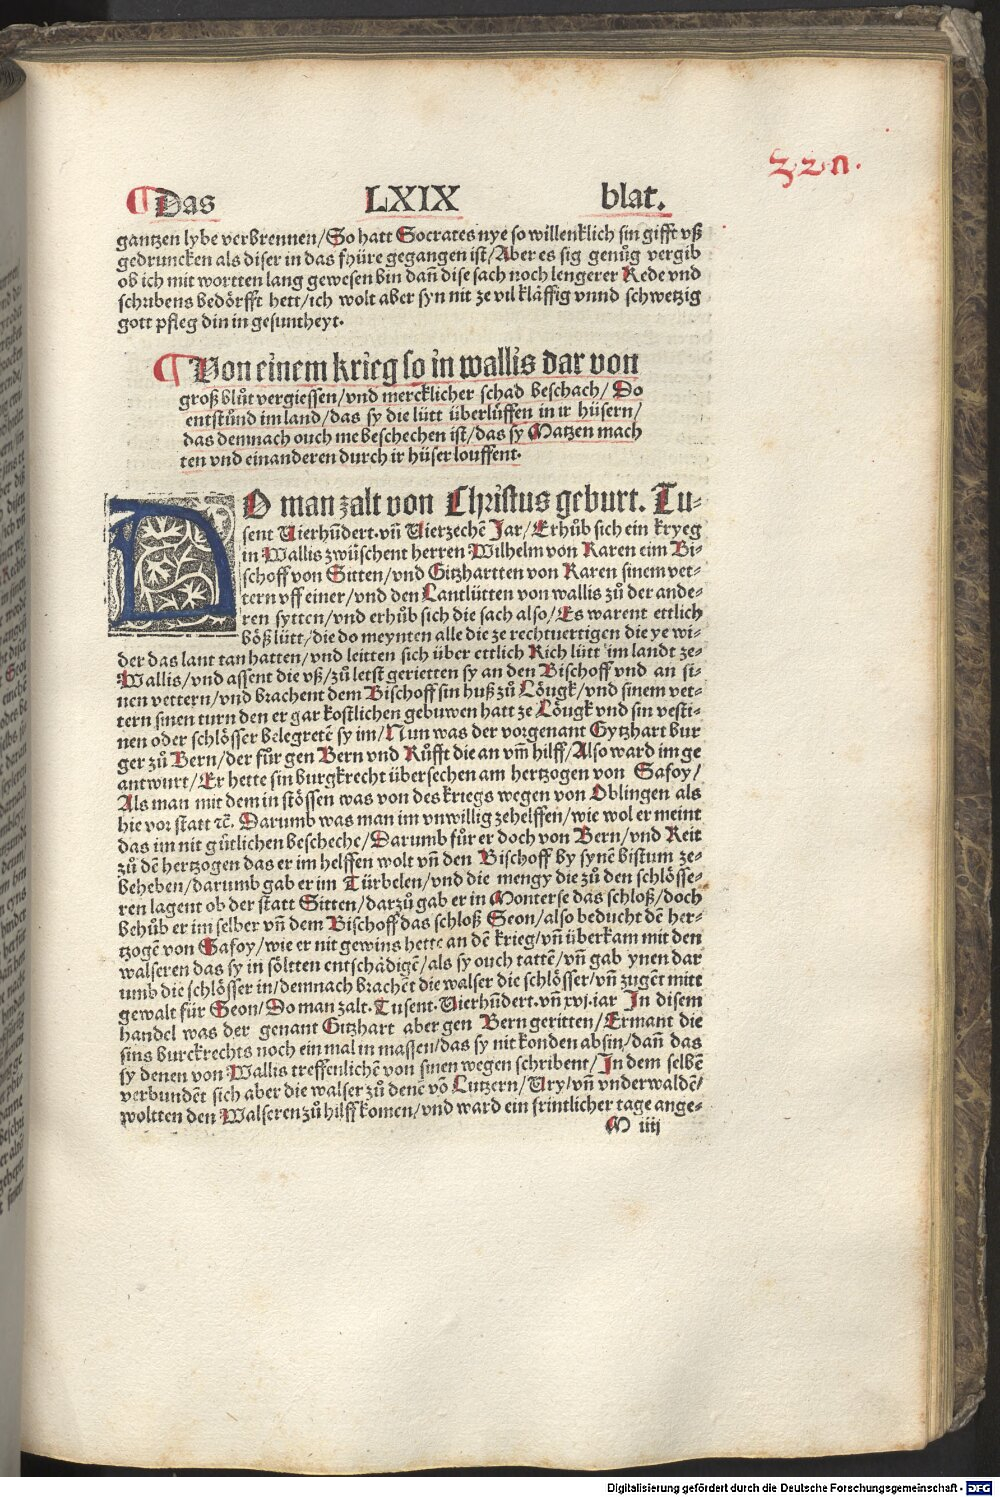 32n.
¶Das LXIX blat.
gantzen lybe verbrennen/So hatt Socrates nye so willenklich sin gifft vß
gedruncken als diser in das fhüre gegangen ist/Aber es sig genůg vergib
ob ich mit wortten lang gewesen bin dañ dise sach noch lengerer Rede vnd
schribens bedörfft hett/ich wolt aber syn nit ze vil kläffig vnnd schwetzig
gott pfleg din in gesuntheyt.
¶Von einem krieg so in wallis dar von
groß blůt vergiessen/vnd mercklicher schad beschach/Do
entstůnd im land/das sy die lütt überlůffen in ir hüsern/
das demnach ouch me beschechen ist/das sy Matzen mach
ten vnd einanderen durch ir hüser louffent.
DO man zalt von Christus geburt. Tu-
sent Vierhūdert.vñ Vierzechē Jar/Erhůb sich ein kryeg
in Wallis zwüschent herren Wilhelm von Raren eim Bi-
schoff von Sitten/vnd Gitzhartten von Raren sinem vet-
tern vff einer/vnd den Lantlütten von wallis zů der ande-
ren sytten/vnd erhůb sich die sach also/Es warent ettlich
böß lütt/die do meynten alle die ze rechtuertigen die ye wi-
der das lant tan hatten/vnd leitten sich über ettlich Rich lütt im landt ze-
Wallis/vnd assent die vß/zů letst gerietten sy an den Bischoff vnd an si-
nen vettern/vnd brachent dem Bischoff sin huß zů Löugk/vnd sinem vet-
tern sinen turn den er gar kostlichen gebuwen hatt ze Löugk vnd sin vesti-
nen oder schlösser belegretē sy im/Nun was der vorgenant Gytzhart bur
ger zů Bern/der fůr gen Bern vnd Růfft die an vm̄ hilff/Also ward im ge
antwurt/Er hette sin burgkrecht übersechen am hertzogen von Safoy/
Als man mit dem in stössen was von des kriegs wegen von Oblingen als
hie vor statt ⁊c̄. Darumb was man im vnwillig zehelffen/wie wol er meint
das im nit gütlichen bescheche/Darumb fůr er doch von Bern/vnd Reit
zů dē hertzogen das er im helffen wolt vñ den Bischoff by synē bistum ze-
beheben/darumb gab er im Türbelen/vnd die mengy die zů den schlösse-
ren lagent ob der statt Sitten/darzů gab er in Monterse das schloß/doch
behůb er im selber vñ dem Bischoff das schloß Seon/also beducht dē her-
tzogē von Safoy/wie er nit gewins hette an dē krieg/vñ überkam mit den
walseren das sy in söltten entschådigē/als sy ouch tattē/vñ gab ynen dar
umb die schlösser in/demnach brachēt die walser die schlösser/vñ zugēt mitt
gewalt für Seon/Do man zalt.Tusent.Vierhūdert.vñ xvj.iar In disem
handel was der genant Gitzhart aber gen Bern geritten/Ermant die
sins burckrechts noch ein mal in massen/das sy nit konden absin/dañ das
sy denen von Wallis treffenlichē von sinen wegen schribent/In dem selbē
verbundēt sich aber die walser zů denē vō Lutzern/Ury/vñ vnderwaldē/
woltten den Walseren zů hilff komen/vnd ward ein früntlicher tage ange-
M iiij
Digitalisierung gefördert durch die Deutsche Forschungsgemeinschaft - DFG